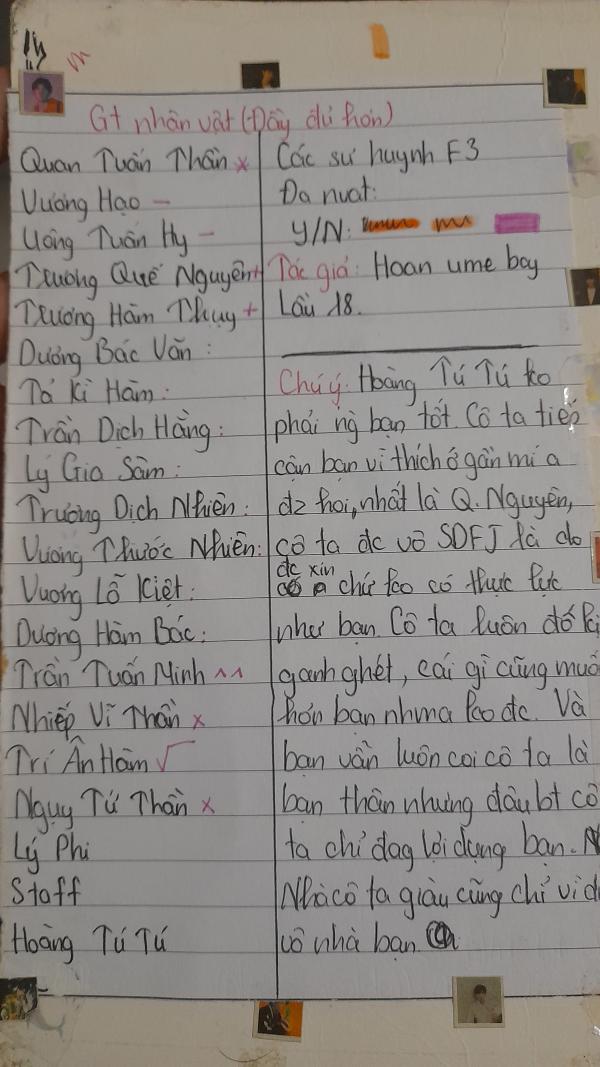 Gt nhân vật (Đầy đủ hơn)
Quan Tuấn Thần x
Vương Hạo -
Uông Tuấn Hy -
Trương Quế Nguyên +
Trương Hàm Thụy +
Dương Bác Văn :
Tả Kì Hàm :
Trần Dịch Hằng :
Lý Gia Sâm :
Trương Dịch Nhiên :
Vương Thước Nhiên :
Vương Lỗ Kiệt :
Dương Hàm Bác :
Trần Tuấn Minh ^^
Nhiếp Vĩ Thần x
Trí Ân Hàm √
Ngụy Tử Thần x
Lý Phi
Staff
Hoàng Tú Tú
Các sư huynh F3
Đa nuat:
Y/N:
Tác giả: Hoan ume boy
Lầu 18.
Chú ý: Hoàng Tú Tú ko
phải ng bạn tốt. Cô ta tiếp
cận bạn vì thích ở gần mí a
dz hoi, nhất là Q. Nguyên,
cô ta đc vô SDFJ là do
đc xin
chứ ko có thực lực
như bạn. Cô ta luôn đố kị
ganh ghét, cái gì cũng muố
hơn bạn nhma ko đc. Và
bạn vẫn luôn coi cô ta là
bạn thân nhưng đâu bt cô
ta chỉ đag lợi dụng bạn.
Nhà cô ta giàu cũng chỉ vì d
vô nhà bạn.